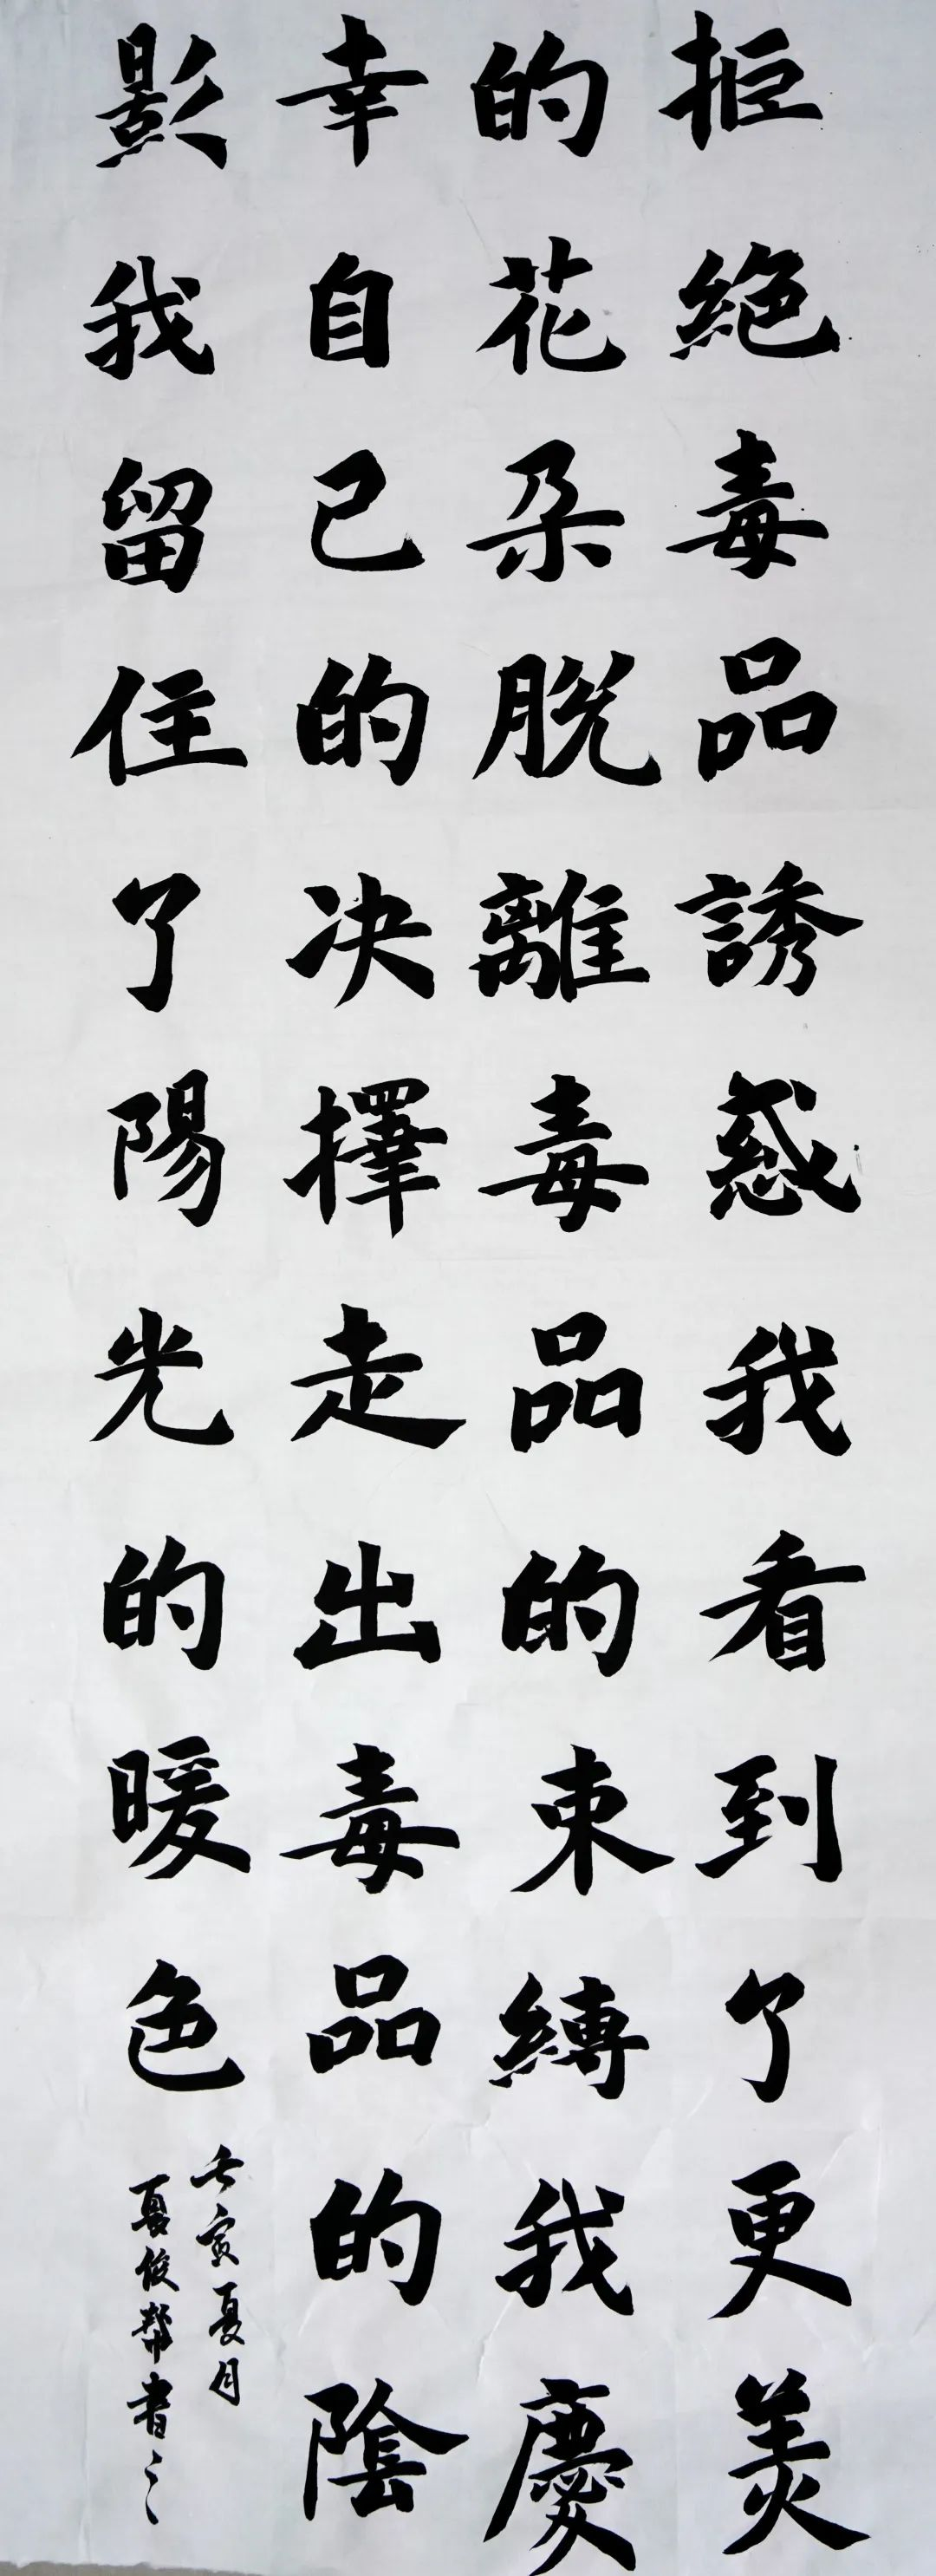 拒絕毒品誘惑我看到了更美
的花朵脱離毒品的束縛我慶
幸自己的决擇走出毒品的陰
影我留住了陽光的暖色
壬寅夏月
夏俊幫書